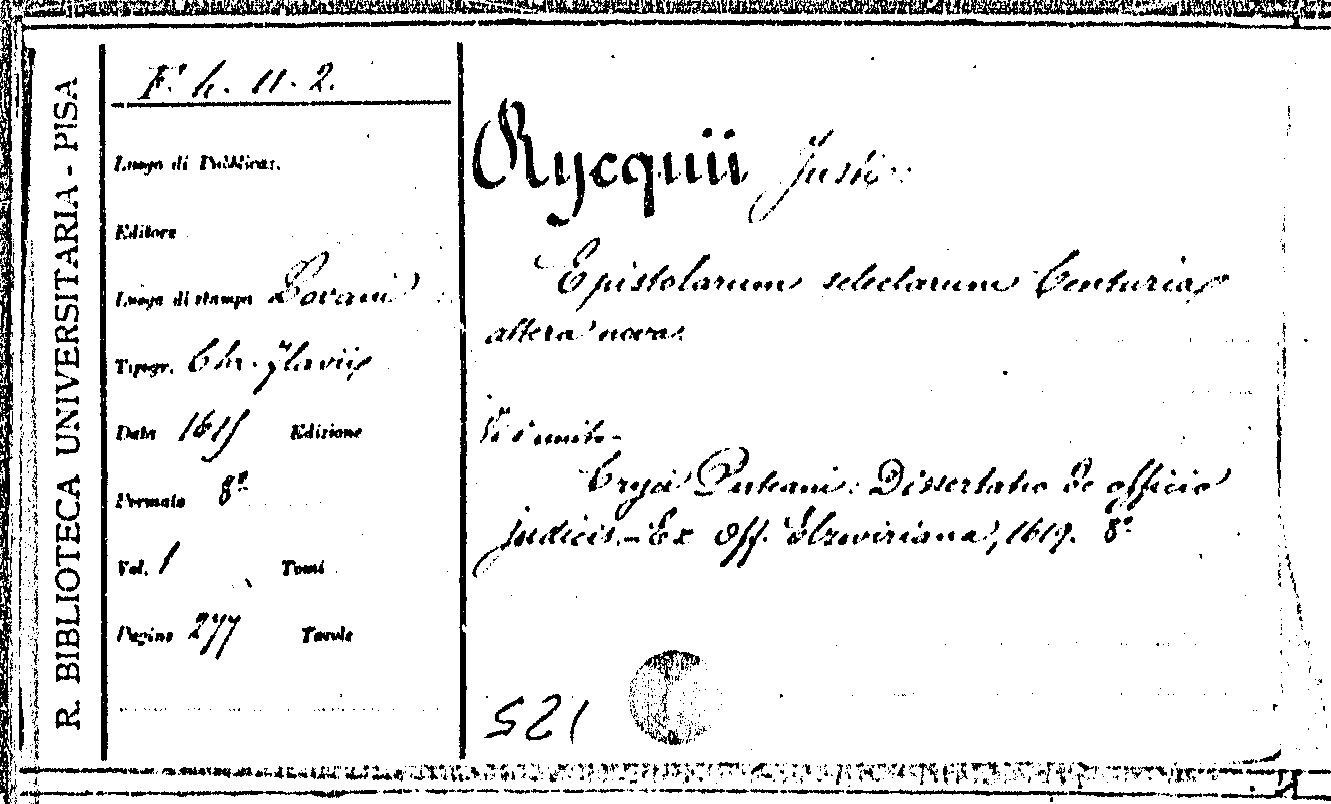 R. BIBLIOTECA UNIVERSITARIA - PISA
F. h. 11. 2.
Luogo di Pubblicaz.
Editore
Luogo di stampa Lovanii
Tipogr. Chr. Flavii
Data 1615 Edizione
Formato 8º
Vol. 1 Tomi
Pagine 277 Tavole
Rycquii Justi
Epistolarum selectarum Centuria
altera nova.
Vi è unito
Eryci Puteani: Dissertatio de officio
judicis. - Ex Off. Elzeviriana, 1619. 8º
521